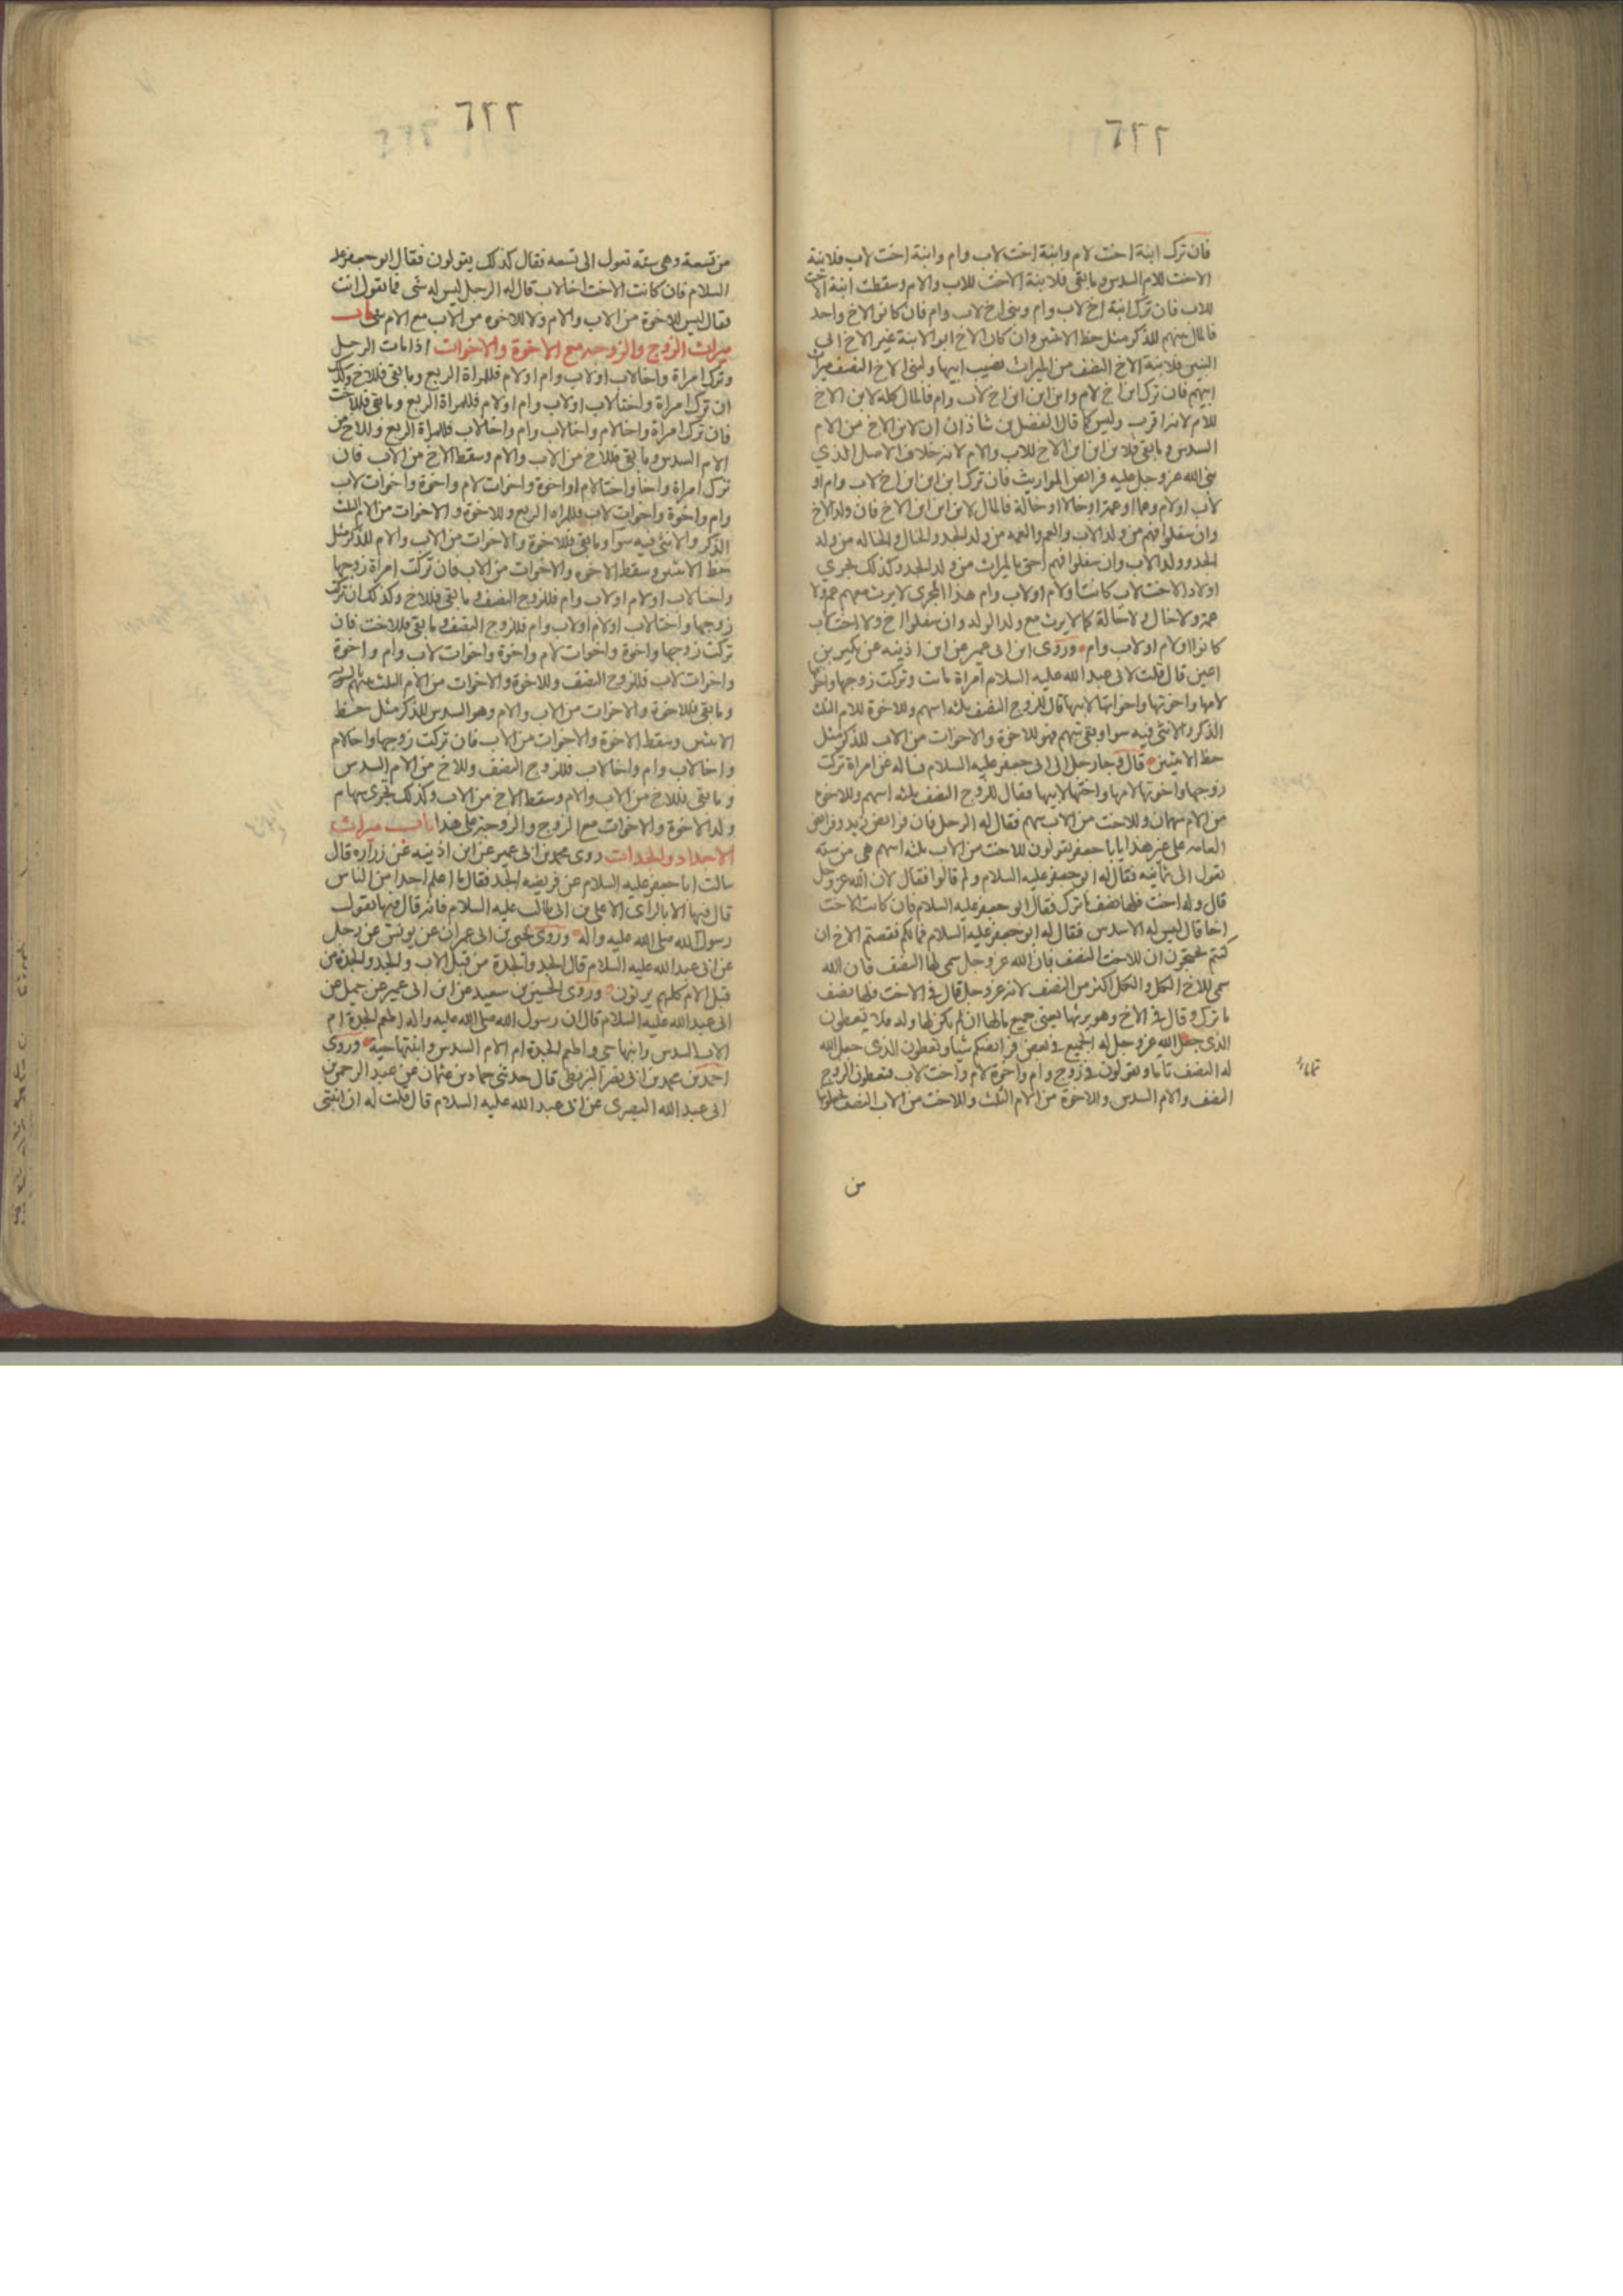 ٦٢٢
فان ترك ابنة اخت لام وابنة اخت لاب وام وابنة اخت لاب فلابنة
الاخت للام السدس وما بقى فلابنة الاخت للاب والام وسقطت ابنة الاخت
للاب فان ترك ابنة اخ لاب وام وبنى اخ لاب وام فان كانوا لاخ واحد
فالمال بينهم للذكر مثل حظ الانثيين وان كان الاخ ابو الابنة غير الاخ ابى
البنين فلابنة الاخ النصف من الميراث نصيب ابيها ولبنى الاخ النصف ميراث
ابيهم فان ترك ابن اخ لام وابن ابن ابن اخ لاب وام فالمال كله لابن الاخ
للام لانه اقرب وليس كما قال الفضل بن شاذان ان لابن الاخ من الام
السدس وما بقى فلابن ابن ابن الاخ للاب والام لانه خلاف الاصل الذي
بنى الله عز وجل عليه فرائض المواريث فان ترك ابن ابن ابن اخ لاب وام او
لاب او لام وعما او عمة او خالا او خالة فالمال لابن ابن ابن الاخ فان ولد الاخ
وان سفلوا فهم من ولد الاب والعم والعمه من ولد الجد والخال والخاله من ولد
الجد وولد الاب وان سفلوا فهم احق بالميراث من ولد الجد وكذلك يجري
اولاد الاخت لاب كانت او لام او لاب وام هذا المجرى لا يرث معهم عم ولا
عمة ولا خال ولا خالة كما لا يرث مع ولد الولد وان سفلوا اخ ولا اخت لاب
كانوا او لام او لاب وام وروى ابن ابى عمير عن ابن اذينه عن بكير بن
اعين قال قلت لابى عبد الله عليه السلام امراة ماتت وتركت زوجها واخوتها
لامها واخوتها واخواتها لابيها قال للزوج النصف ثلثه اسهم وللاخوة للام الثلث
الذكر والانثى فيه سوا وبقى سهم فهو للاخوة والاخوات من الاب للذكر مثل
حظ الانثيين قال وجا رجل الى ابى جعفر عليه السلام فساله عن امراة تركت
زوجها واخوتها لامها واختها لابيها فقال للزوج النصف ثلثه اسهم وللاخوه
من الام سهمان وللاخت من الاب سهم فقال له الرجل فان فرائض زيد وفرائض
العامه على غير هذا يا با جعفر يقولون للاخت من الاب ثلثه اسهم هى من سته
تعول الى ثمانيه فقال له ابو جعفر عليه السلام ولم قالوا فقال لان الله عز وجل
قال وله اخت فلها نصف ما ترك فقال ابو جعفر عليه السلام فان كانت الاخت
اخا قال ليس له الا السدس فقال له ابو جعفر عليه السلام فما لكم نقصتم الاخ ان
كنتم تحتجون ان للاخت النصف بان الله عز وجل سمى لها النصف فان الله
سمى للاخ الكل والكل اكثر من النصف لانه عز وجل قال فى الاخت فلها نصف
ما ترك وقال فى الاخ وهو يرثها يعنى جميع مالها ان لم يكن لها ولد فلا تعطون
الذى جعل الله عز وجل له الجميع فى بعض فرائضكم شيا وتعطون الذى جعل الله
له النصف تاما وتقولون فى زوج وام واخوة لام واخت لاب فتعطون الزوج
النصف والام السدس وللاخوة من الام الثلث وللاخت من الاب النصف
من
٦٢٢
من تسعة وهى سته تعول الى تسعه فقال كذلك يقولون فقال ابو جعفر عليه
السلام فان كانت الاخت اخا لاب قال له الرجل ليس له شى فما تقول انت
فقال ليس للاخوة من الاب والام ولا للاخوه من الاب مع الام شى باب
ميراث الزوج والزوجه مع الاخوة والاخوات اذا مات الرجل
وترك امراة واخا لاب او لاب وام او لام فللمراة الربع وما بقى فللاخ وكذلك
ان ترك امراة واختا لاب او لاب وام او لام فللمراة الربع وما بقى فللاخت
فان ترك امراة واخا لام واخا لاب وام واخا لاب فللمراة الربع وللاخ من
الام السدس وما بقى فللاخ من الاب والام وسقط الاخ من الاب فان
ترك امراة واخا واختا لام او اخوة واخوات لام واخوة واخوات لاب
وام واخوة واخوات لاب فللمراه الربع وللاخوة والاخوات من الام الثلث
الذكر والانثى فيه سوا وما بقى فللاخوة والاخوات من الاب والام للذكر مثل
حظ الانثيين وسقط الاخوه والاخوات من الاب فان تركت امراة زوجها
واخا لاب او لام او لاب وام فللزوج النصف وما بقى فللاخ وكذلك ان تركت
زوجها واختا لاب او لام او لاب وام فللزوج النصف وما بقى فللاخت فان
تركت زوجها واخوة واخوات لام واخوة واخوات لاب وام واخوة
واخوات لاب فللزوج النصف وللاخوة والاخوات من الام الثلث بينهم بالسويه
وما بقى فللاخوة والاخوات من الاب والام وهو السدس للذكر مثل حظ
الانثيين وسقط الاخوة والاخوات من الاب فان تركت زوجها واخا لام
واخا لاب وام واخا لاب فللزوج النصف وللاخ من الام السدس
وما بقى فللاخ من الاب والام وسقط الاخ من الاب وكذلك تجرى سهام
ولد الاخوة والاخوات مع الزوج والزوجة على هذا باب ميراث
الاجداد والجدات روى محمد بن ابى عمير عن ابن اذينه عن زراره قال
سالت ابا جعفر عليه السلام عن فريضه الجد فقال ما اعلم احدا من الناس
قال فيها الا بالراى الا على بن ابى طالب عليه السلام فانه قال فيها بقول
رسول الله صلى الله عليه واله وروى يحيى بن ابى عمران عن يونس عن رجل
عن ابى عبد الله عليه السلام قال الجد والجدة من قبل الاب والجد والجدة من
قبل الام كلهم يرثون وروى الحسين بن سعيد عن ابن ابى عمير عن جميل عن
ابى عبد الله عليه السلام قال ان رسول الله صلى الله عليه واله اطعم الجدة ام
الاب السدس وابنها حى واطعم الجدة ام الام السدس وابنتها حية وروى
احمد بن محمد بن ابى نصر البزنطى قال حدثنى حماد بن عثمان عن عبد الرحمن بن
ابى عبد الله البصرى عن ابى عبد الله عليه السلام قال قلت له ان ابنتى